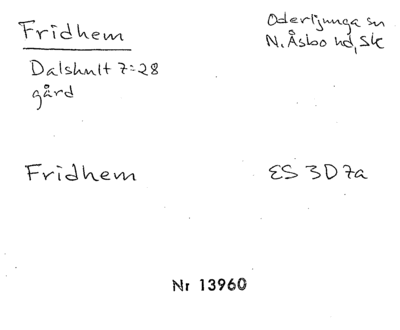 Fridhem
Oderljunga sn
N. Åsbo hd, Sk
Dalshult 7:28
gård
Fridhem
ES 3D 7a
Nr 13960